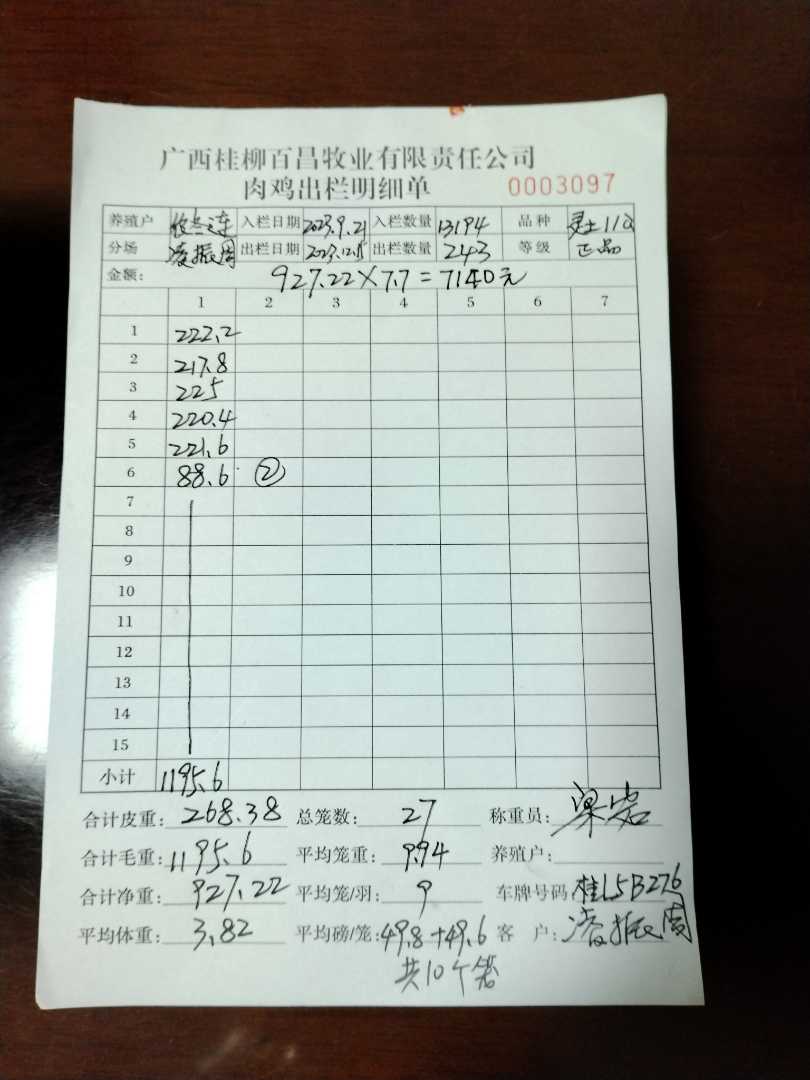 广西桂柳百昌牧业有限责任公司
肉鸡出栏明细单 0003097
养殖户 入栏日期 2023.9.21 入栏数量 13194 品种 110
分场 凌振周 出栏日期 2023.12.15 出栏数量 243 等级 正品
金额: 927.22×7.7=7140元
1 2 3 4 5 6 7
1 222.2
2 217.8
3 225
4 220.4
5 221.6
6 88.6 ②
7
8
9
10
11
12
13
14
15
小计 1195.6
合计皮重: 268.38 总笼数: 27 称重员: 梁岩
合计毛重: 1195.6 平均笼重: 9.94 养殖户:
合计净重: 927.22 平均笼/羽: 9 车牌号码: 桂L5B276
平均体重: 3.82 平均磅/笼: 49.8+49.6 客户: 凌振周
共10个笼